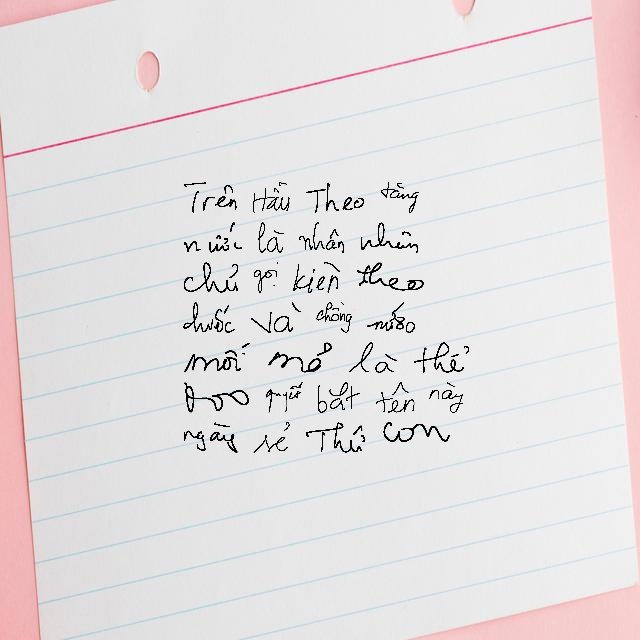 Trên Hầu Theo tầng
nước là nhân nhân
chủ gọi kiến theo
thuốc và chồng
mối mở là thể
quý bắt tên này
ngày sẻ Thứ con